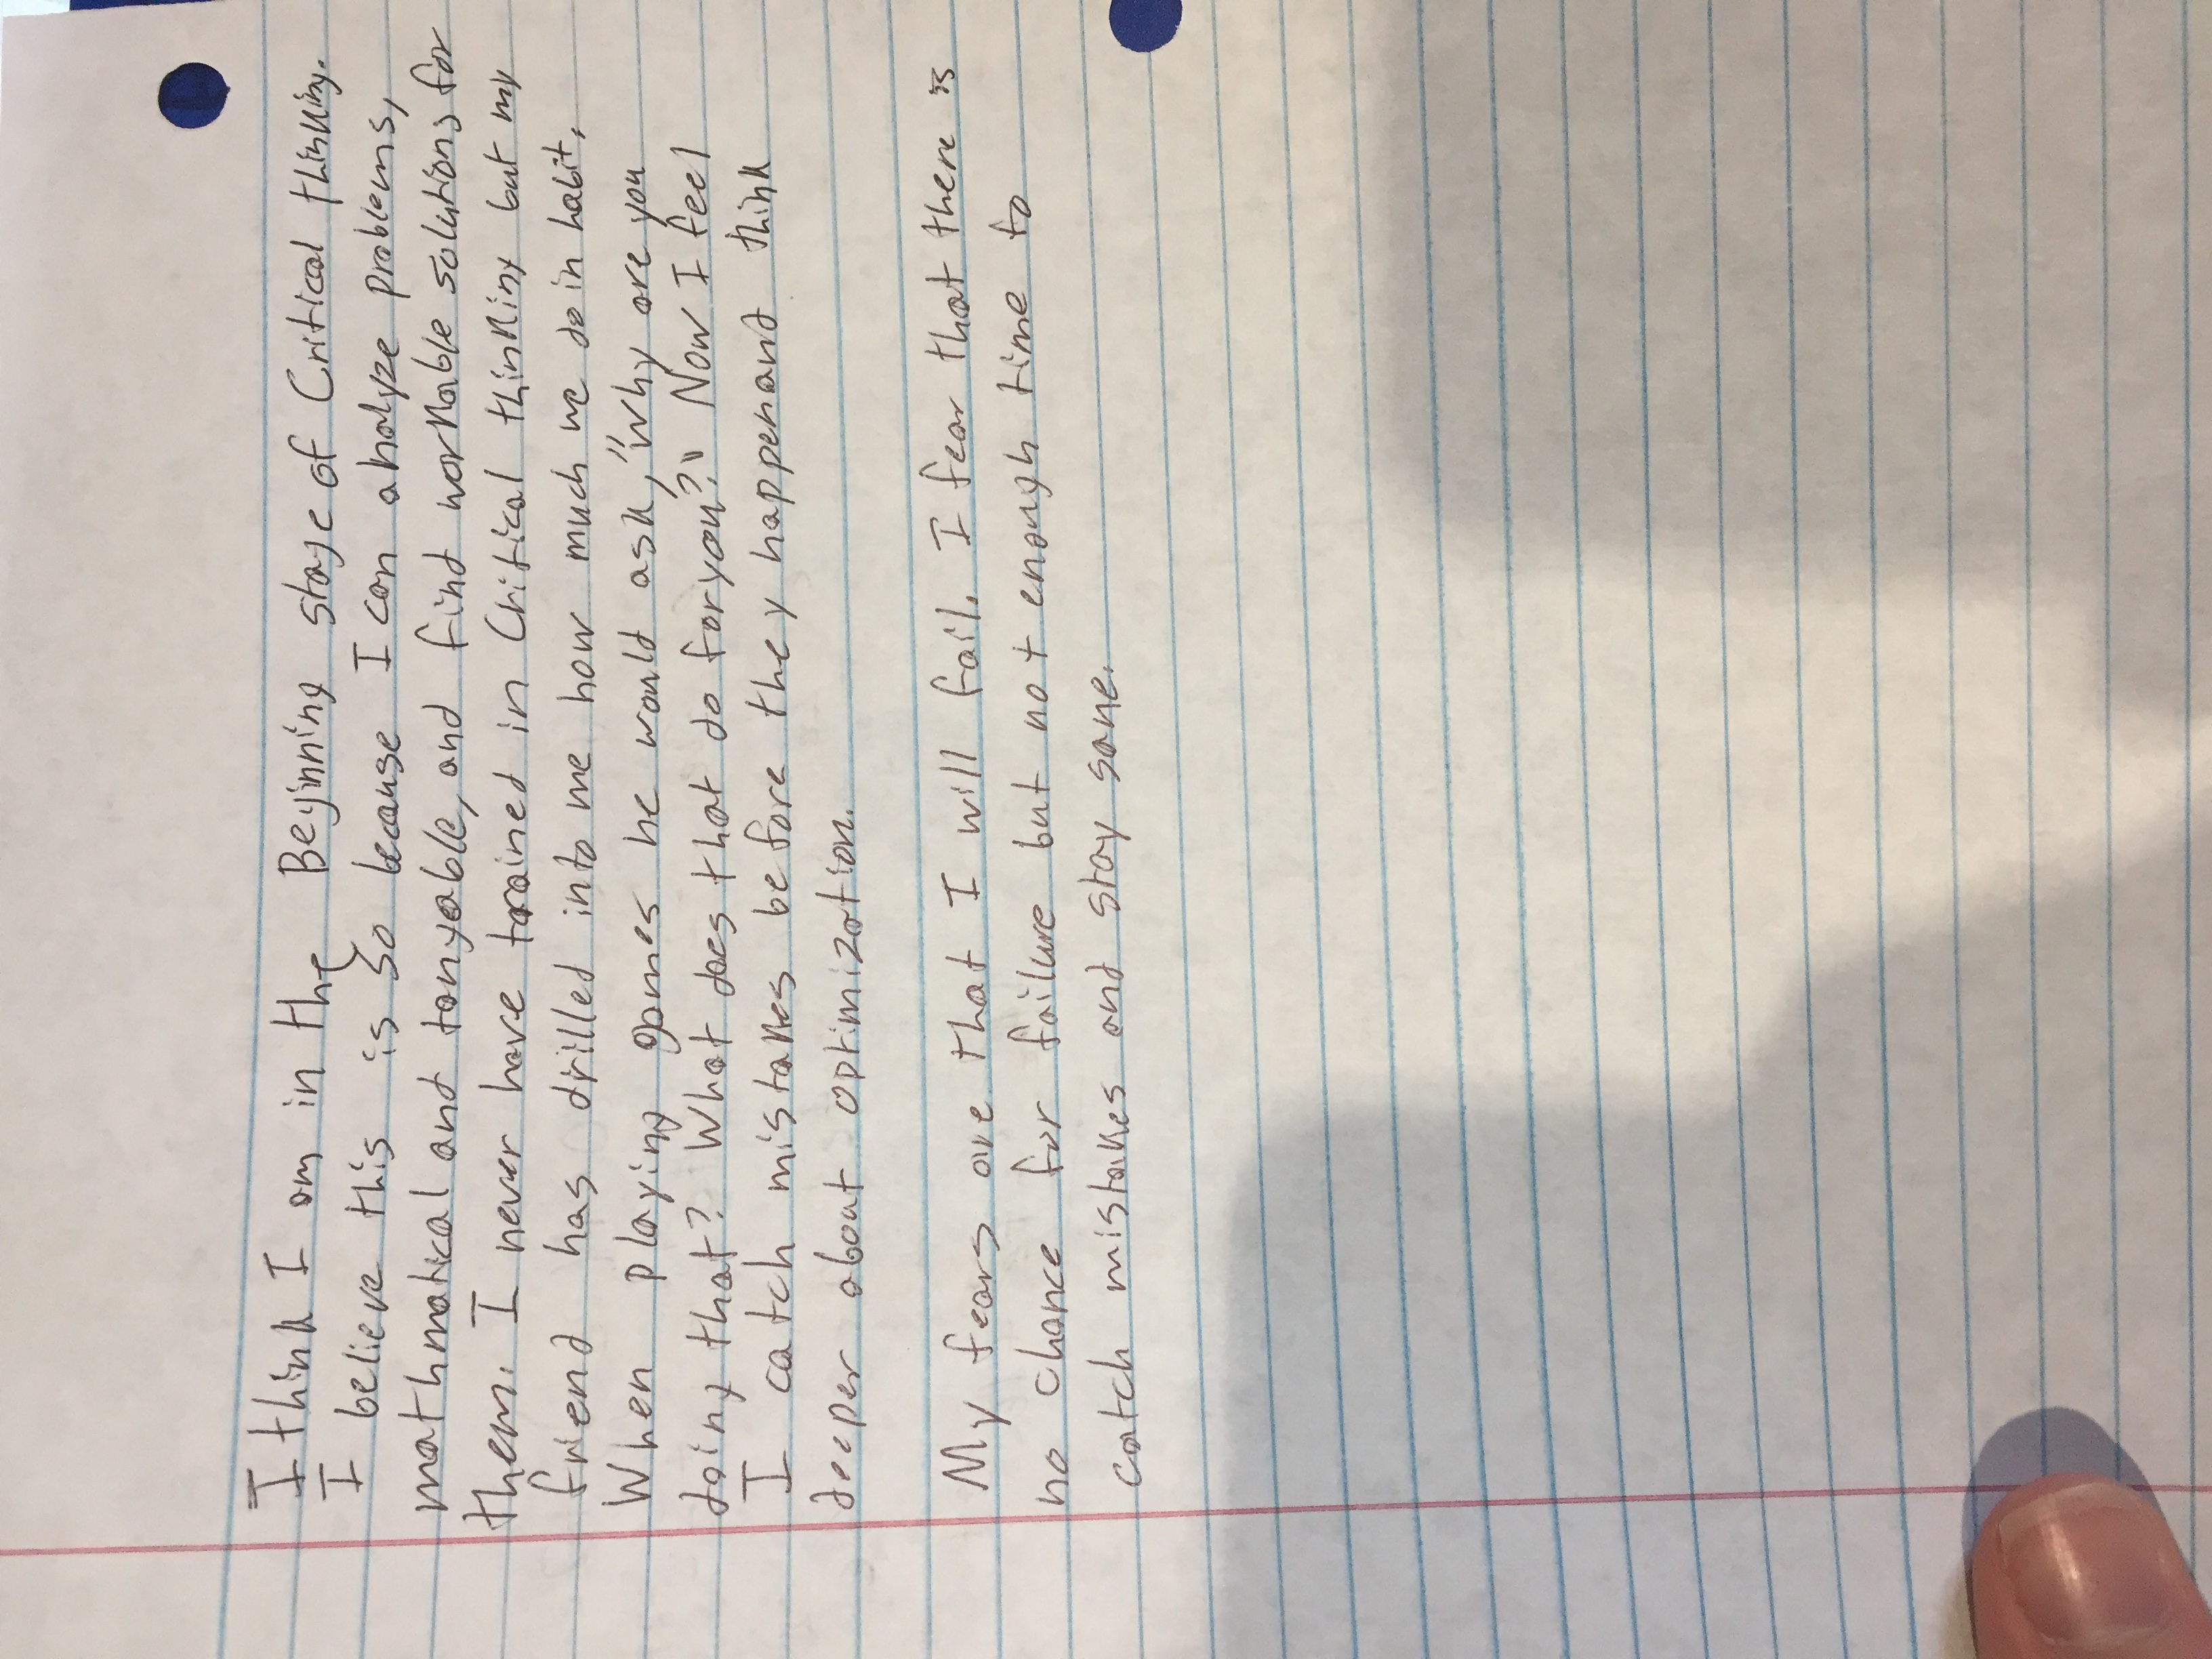 I think I am in the Beginning stage of Critical thinking.
I believe this is so because I can analyze problems,
mathmatical and tangable, and find workable solutions for
them. I never have trained in Critical thinking but my
friend has drilled into me how much we do in habit.
When playing games he would ask, "Why are you
doing that? What does that do for you?" Now I feel
I catch mistakes before they happen and think
deeper about optimization.
My fears are that I will fail. I fear that there is
no chance for failure but not enough time to
catch mistakes and stay sane.